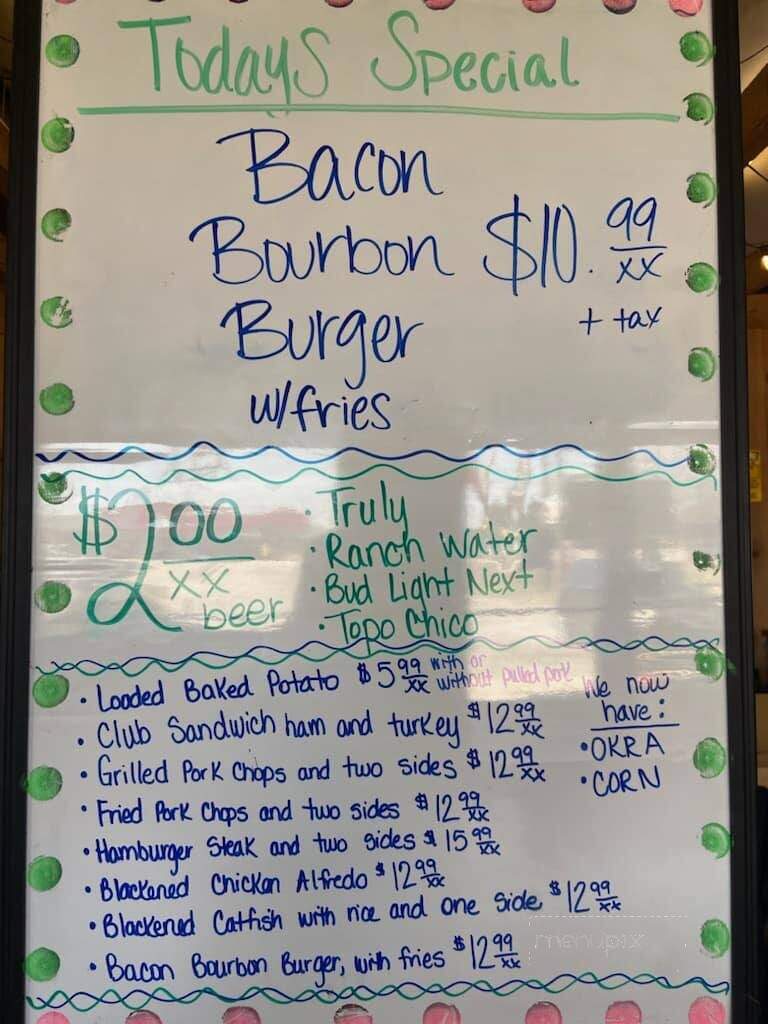 Todays Special
Bacon
Bourbon $10.99/xx
Burger + tax
w/fries
$2 00/xx beer
• Truly
• Ranch Water
• Bud Light Next
• Topo Chico
• Loaded Baked Potato $5 99/xx with or without pulled pork
• Club Sandwich ham and turkey $12 99/xx
• Grilled Pork Chops and two sides $12 99/xx
• Fried Pork Chops and two sides $12 99/xx
• Hamburger Steak and two sides $15 99/xx
• Blackened Chicken Alfredo $12 99/xx
• Blackened Catfish with rice and one side $12 99/xx
• Bacon Bourbon Burger, with fries $12 99/xx
We now
have:
• OKRA
• CORN
menupix